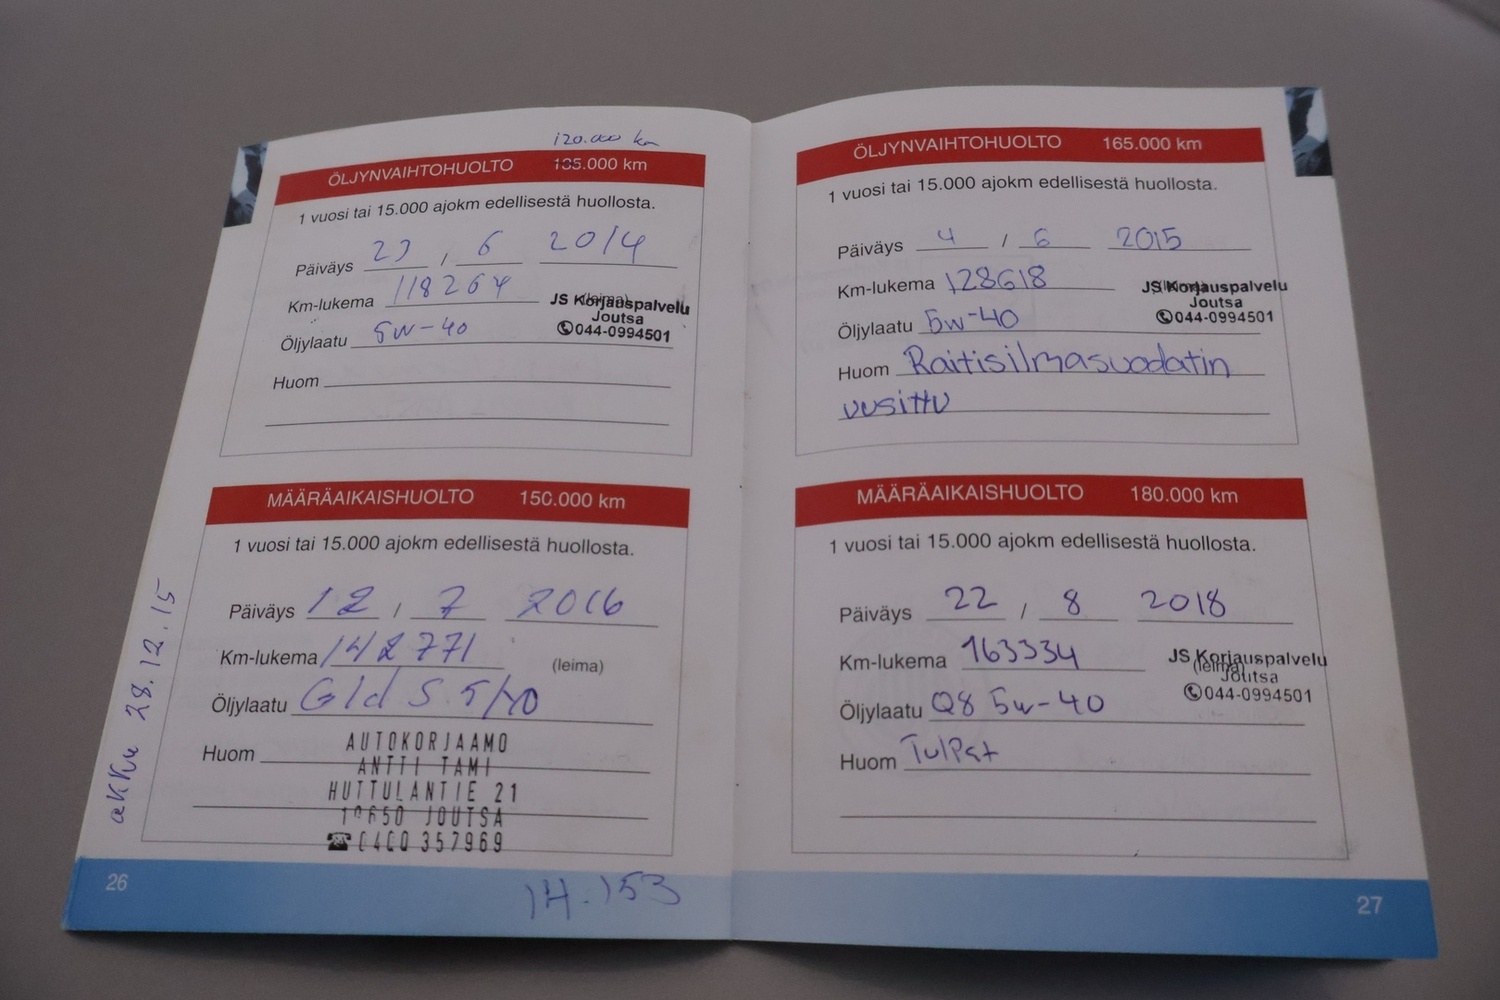 120.000 km
ÖLJYNVAIHTOHUOLTO 135.000 km
1 vuosi tai 15.000 ajokm edellisestä huollosta.
Päiväys 23 / 6 2014
Km-lukema 118264 (leima)
JS Korjauspalvelu
Joutsa
044-0994501
Öljylaatu 5w-40
Huom
MÄÄRÄAIKAISHUOLTO 150.000 km
1 vuosi tai 15.000 ajokm edellisestä huollosta.
Päiväys 12 / 7 2016
Km-lukema 142771 (leima)
Öljylaatu Gld S. 5/40
Huom
AUTOKORJAAMO
ANTTI TAMI
HUTTULANTIE 21
19650 JOUTSA
0400 357969
akku 28.12.15
26
14.153
ÖLJYNVAIHTOHUOLTO 165.000 km
1 vuosi tai 15.000 ajokm edellisestä huollosta.
Päiväys 4 / 6 2015
Km-lukema 128618
JS Korjauspalvelu
Joutsa
044-0994501
Öljylaatu 5w-40
Huom Raitisilmasuodatin
uusittu
MÄÄRÄAIKAISHUOLTO 180.000 km
1 vuosi tai 15.000 ajokm edellisestä huollosta.
Päiväys 22 / 8 2018
Km-lukema 163334 (leima)
JS Korjauspalvelu
Joutsa
044-0994501
Öljylaatu Q8 5w-40
Huom Tulpat
27